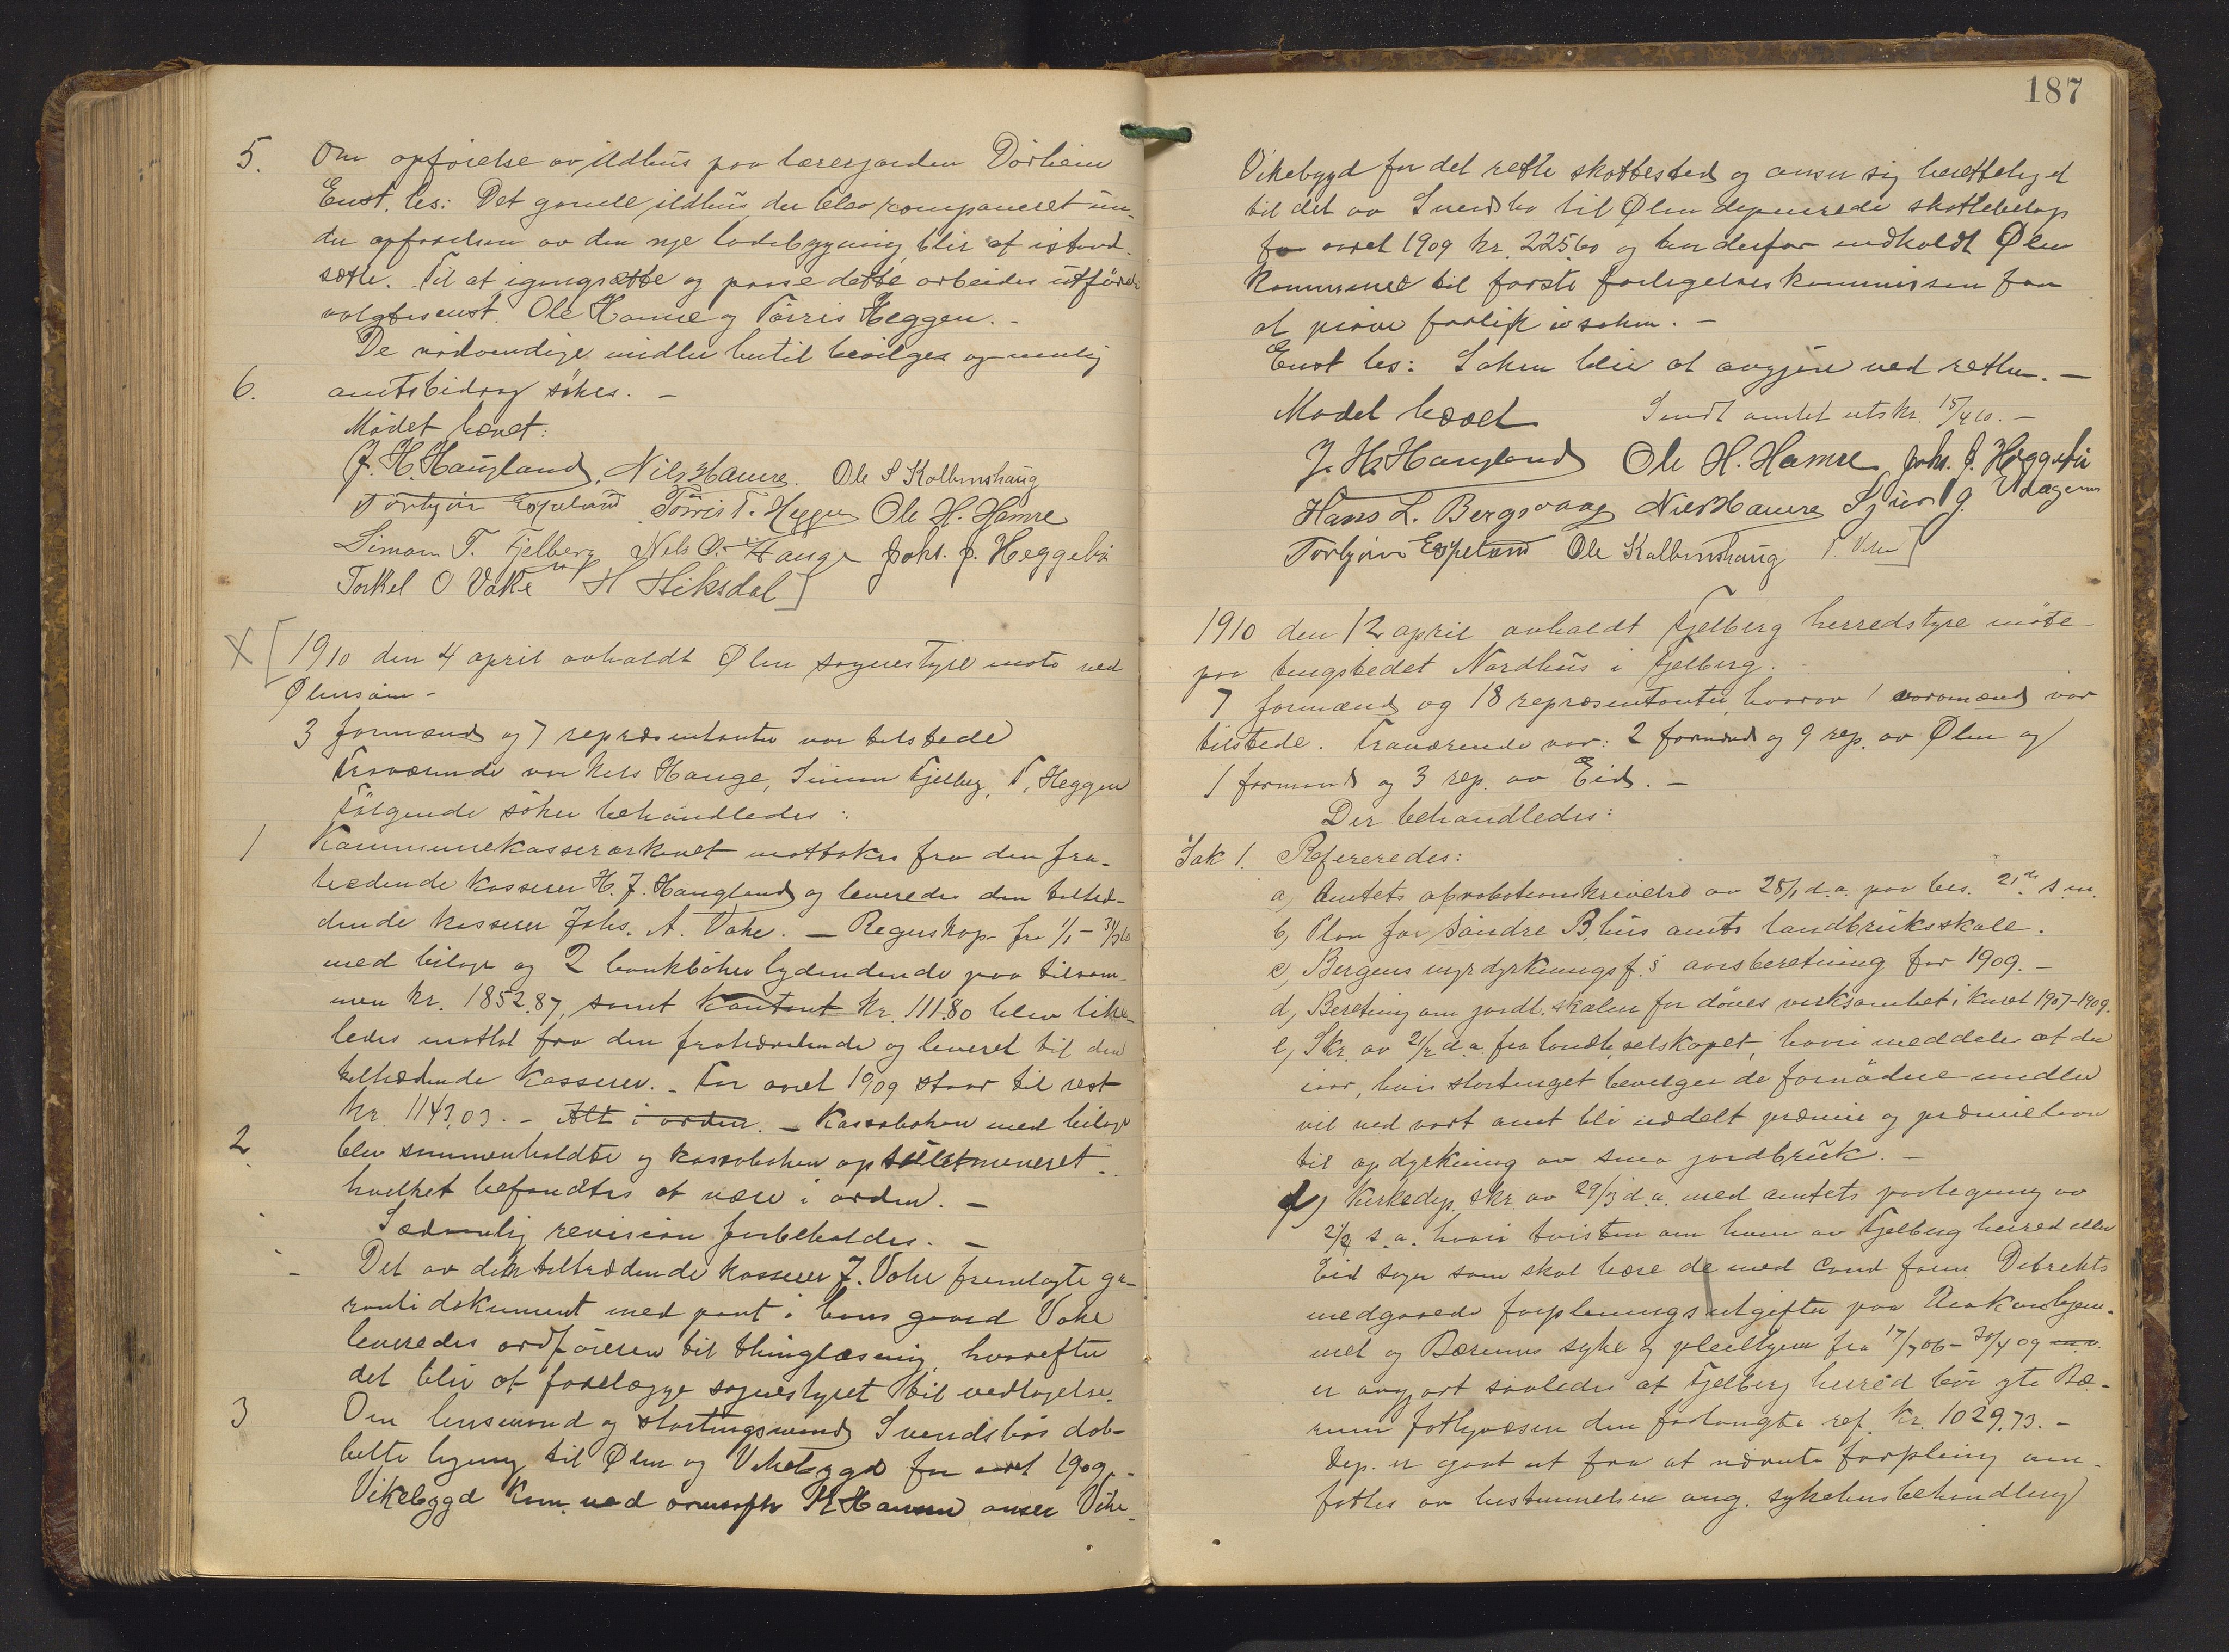 5. Om opförelse av ildhus paa lærerjorden Dörheim
Enst. bes: Det gamle ildhus der blev ramponeret un-
der opförelsen av den nye ladebygning blir at istand-
sætte. Til at igangsætte og passe dette arbeides utförelse
valgtes enst. Ole Hamre og Törris Heggen. -
De nödvendige midler hertil bevilges og mulig
6. amtsbidrag sökes. -
Mödet hævet:
J. H. Haugland, Nils Hamre. Ole S Kalbenshaug
Torbjörn Espeland Törris T. Heggen Ole H. Hamre
Simon T. Fjelberg Nels O. Hauge Johs. J. Heggebö
Torkel O Vake H Hiksdal]
X [1910 den 4 april avholdt Ølen sognestyre möte ved
Ølensöen -
3 formænd og 7 repræsentanter var tilstede
Fraværende var Nels Hauge, Simon Fjelberg, T. Heggen
Fölgende saker behandledes:
1 Kommunekasserarkivet mottokes fra den fra-
trædende kasserer H. J. Haugland og leveredes den tiltræ-
dende kasserer Johs. A. Vake. - Regnskap fra 1/1 - 31/3 10
med bilage og 2 bankböker lydendende paa tilsam-
men kr. 1852.87, samt kontant kr. 111.80 blev like-
ledes mottat fra den fratrædende og leveret til den
tiltrædende kasserer. - For aaret 1909 staar til rest
kr. 1143,03. - Alt i orden. - Kassaboken med bilage
2. blev sammenholdte og kassaboken op
hvilket befandtes at være i orden. -
Sædvanlig revision forbeholdes. -
- Det av den tiltrædende kasserer J. Vake fremlagte ga-
rantidokument med pant i hans gaard Vake
leveredes ordföreren til thinglæsning, hvorefter
det blir at forelægge sognestyret til vedtagelse.
3 Om lensmand og stortingsmand Svendsbös dob-
belte ligning til Ølen og Vikebygd for aaret 1909. -
Vikebygd kom. ved Hansen anser Vike-
187
Vikebygd for det rette skattested og anser sig beretteliget
til det av Svendsbö til Ølen deponerede skattebelöp
for aaret 1909 kr. 225.60 og har derfor indkaldt Ølen
kommune til förste forligelseskommission for
at pröve forlik i saken. -
Enst bes: Saken blir at avgjöre ved retten. -
Mödet hævet Sendt amtet utskr. 15/4 10. -
J. H. Haugland Ole H. Hamre Johs. J. Heggebö
Hans L. Bergsvaag Nils Hamre Sjur J.
Torbjörn Espeland Ole Kalbenshaug T. Vake]
1910 den 12 april avholdt Fjelberg herredstyre möte
paa tingstedet Nordhus i Fjelberg. -
7 formænd og 18 repræsentanter, hvorav 1 varamand var
tilstede. Fraværende var: 2 formænd og 9 rep. av Ølen og
1 formand og 3 rep. av Eid. -
Der behandledes:
Sak 1. Refereredes:
a, Amtets aprobationskrivelse av 28/1 d.a. paa bes. 21de s.m.
b, Plan for Söndre B.hus amts landbruksskole.
c, Bergens myrdyrkningsf.s aarsberetning for 1909. -
d, Beretning om jordb. skolen for döves virksomhet i kurset 1907-1909.
e, Skr. av 21/2 d.a. fra landh. selskapet, hvori meddeles at der
iaar, hvis stortinget bevilger de fornödne midler
vil ved vort amt bli uddelt præmie og præmielaan
til opdyrkning av smaa jordbruk. -
f) Kirkedep. skr. av 29/3 d.a. med amtets paategning av
2/4 s.a. hvori tvisten om hvem av Fjelberg herred eller
Eid sogn som skal bære de med
medgaaede forpleiningsutgifter paa
met og Bærums syke og pleiehjem fra 17/7 06 - 30/4 09
er avgjort saaledes at Fjelberg herred bör yte Bæ-
rum fattigvæsen den forlangte ref. kr. 1029.73. -
Dep. er gaat ut fra at nævnte forpleining om-
fattes av bestemmelsen ang. sykehusbehandling